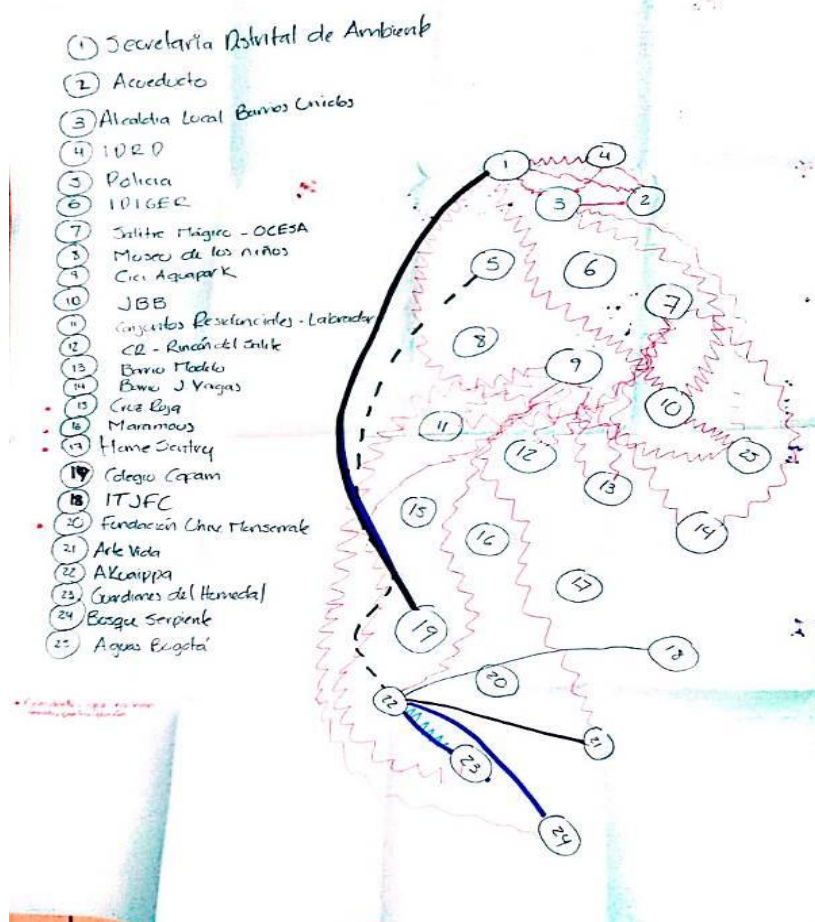 1 Secretaria Distrital de Ambiente
2 Acueducto
3 Alcaldia Local Barrios Unidos
4 IDRD
5 Policia
6 IDIGER
7 Salitre Mágico - OCESA
8 Museo de los niños
9 Cici Aquapark
10 JBB
11 Conjuntos Residenciales - Labrador
12 CR - Rincón del Salitre
13 Barrio Modelo
14 Barrio J. Vargas
15 Cruz Roja
16 Maramous
17 Home Sentry
19 Colegio Copam
18 ITJFC
20 Fundación Monserrate
21 Arte Vida
22 AKuaippa
23 Guardianes del Humedal
24 Bosque Serpiente
25 Aguas Bogotá
1
4
3
2
5
6
7
8
9
10
11
12
13
25
14
15
16
17
19
18
20
22
21
23
24